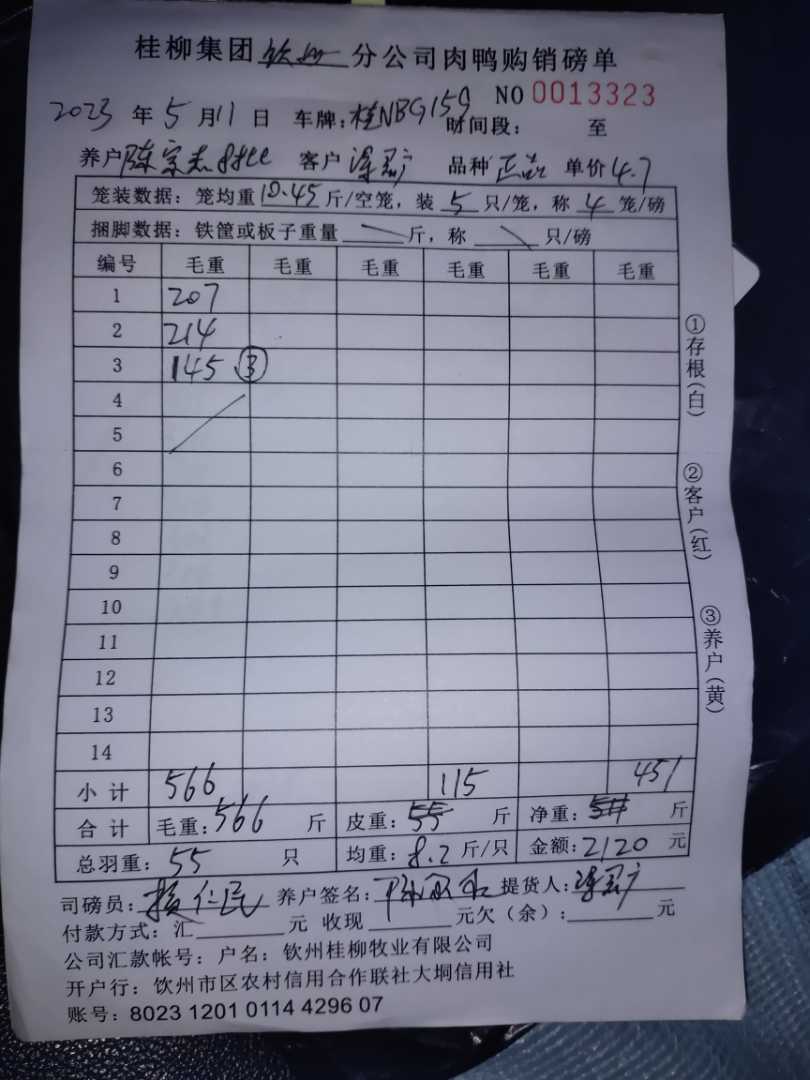 桂柳集团钦州分公司肉鸭购销磅单
NO 0013323
2023年5月11日 车牌:桂NBG159 时间段: 至
养户陈宗志 客户 品种正品 单价4.7
笼装数据:笼均重10.45斤/空笼,装5只/笼,称4笼/磅
捆脚数据:铁筐或板子重量 斤,称 只/磅
编号 毛重 毛重 毛重 毛重 毛重 毛重
1 207
2 214
3 145 ③
4
5
6
7
8
9
10
11
12
13
14
小计 566 115 451
合计 毛重:566斤 皮重:55斤 净重: 斤
总羽重:55只 均重:8.2斤/只 金额:2120元
司磅员: 仁民 养户签名: 提货人:
付款方式:汇 元 收现 元欠(余): 元
公司汇款帐号:户名:钦州桂柳牧业有限公司
开户行:钦州市区农村信用合作联社大垌信用社
账号:8023 1201 0114 4296 07
①存根(白)
②客户(红)
③养户(黄)